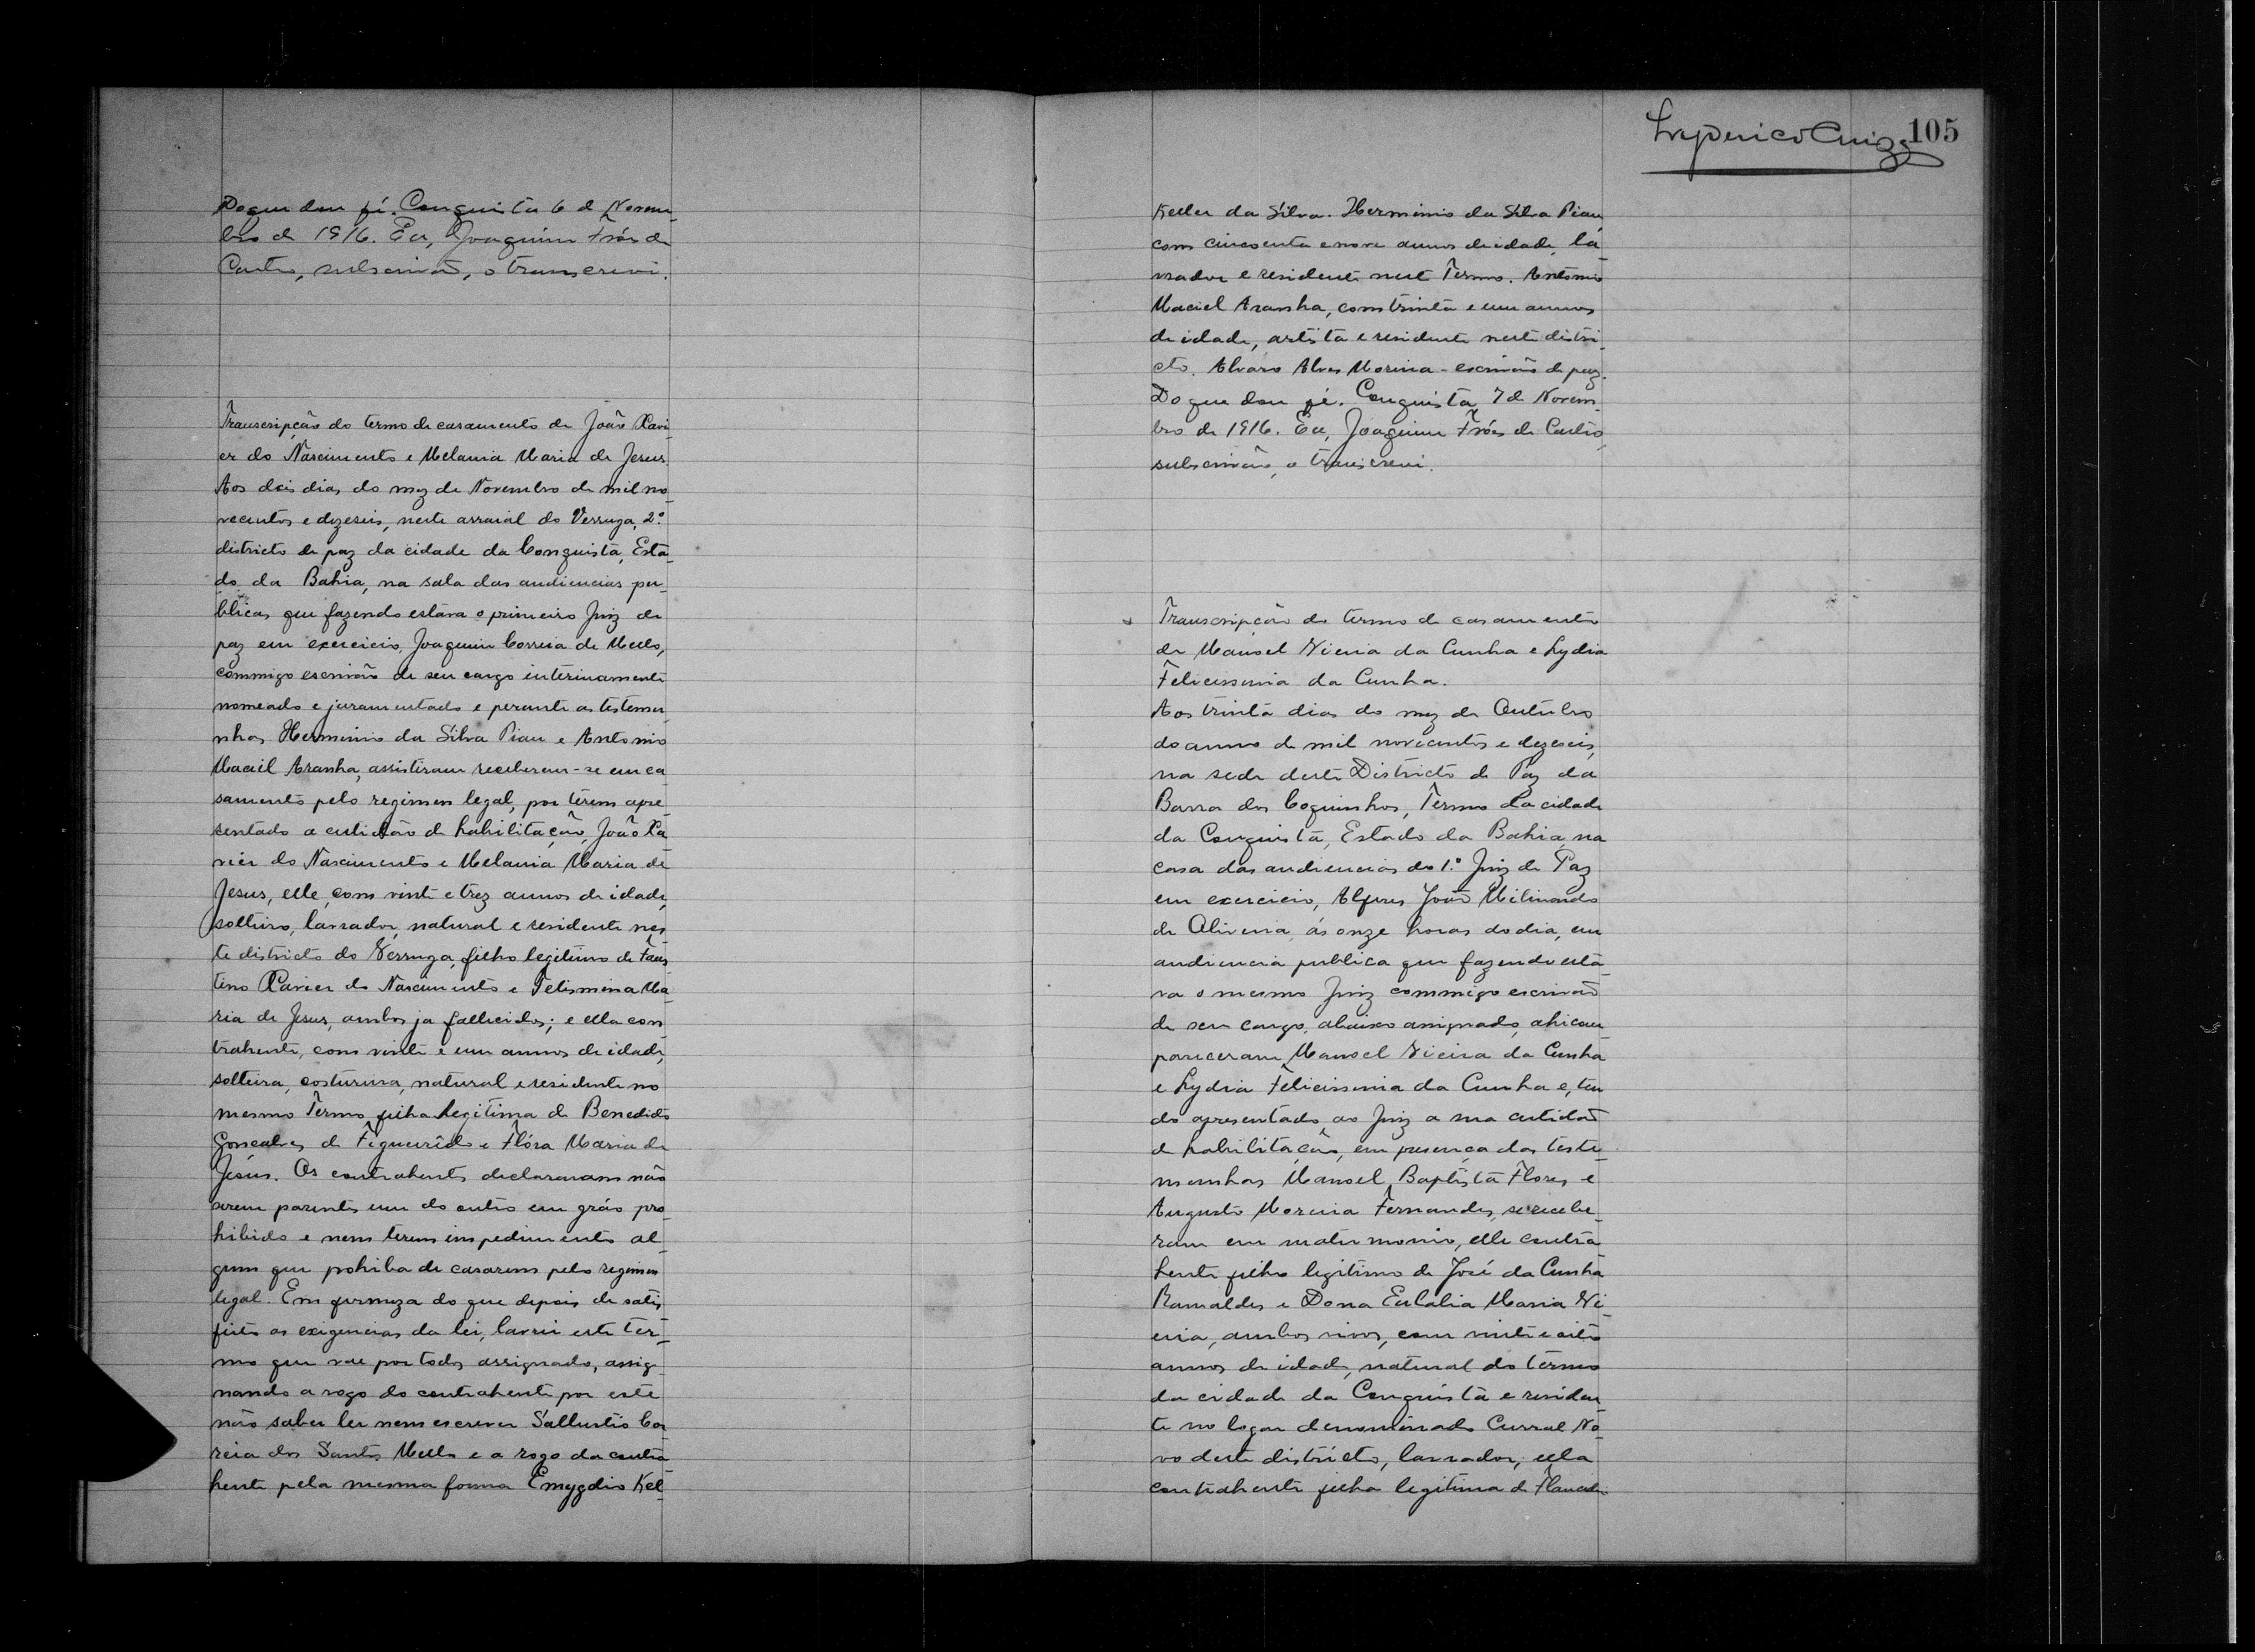 Do que dou fé. Conquista 6 de Novem-
bro de 1916. Eu, Joaquim Fróes de
Castro, subescrivão, o transcrevi.
Transcripção do termo de casamento de João Xavi-
er do Nascimento e Melania Maria de Jesus.
Aos dois dias do mez de Novembro de mil no-
vecentos e dezeseis, neste arraial do Verruga, 2º
districto de paz da cidade da Conquista, Esta-
do da Bahia, na sala das audiencias pu-
blicas que fazendo estava o primeiro Juiz de
paz em exercicio, Joaquim Correia de Mello,
commigo escrivão de seu cargo interinamente
nomeado e juramentado e perante as testemu-
nhas Herminio da Silva Piau e Antonio
Maciel Aranha, assistiram receberem-se em ca
samento pelo regimen legal, por terem apre-
sentado a certidão de habilitação, João Xa-
vier do Nascimento e Melania Maria de
Jesus, elle, com vinte e trez annos de idade,
solteiro, lavrador, natural e residente nes-
te districto do Verruga, filho legitimo de Faus-
tino Xavier do Nascimento e Felismina Ma-
ria de Jesus, ambos ja fallecidos; e ella con-
trahente, com vinte e um annos de idade,
solteira, costureira, natural e residente no
mesmo Termo filha legitima de Benedicto
Gonçalves de Figueirêdo e Flóra Maria de
Jesus. Os contrahentes declararam não
serem parentes um do outro em gráo pro-
hibido e nem terem impedimento al-
gum que prohiba de casarem pelo regimen
legal. Em firmeza do que depois de satis-
feito as exigencias da lei, lavrei este ter-
mo que vae por todos assignado, assig-
nando a rogo do contrahente por este
não saber ler nem escrever Sallustio Cor-
reia dos Santos Mello e a rogo da contra-
hente pela mesma forma Emygdio Kel-
105
Keller da Silva. Herminio da Silva Piau,
com cincoenta e nove annos de idade, la-
vrador e residente neste Termo. Antonio
Maciel Aranha, com trinta e um annos
de idade, artista e residente neste distri-
cto. Alvaro Alves Moreira - escrivão de paz.
Do que dou fé. Conquista, 7 de Novem-
bro de 1916. Eu, Joaquim Fróes de Castro,
subescrivão, o transcrevi.
Transcripção do termo de casamento
de Manoel Vieira da Cunha e Lydia
Felicissima da Cunha.
Aos trinta dias do mez de Outubro
do anno de mil novecentos e dezeseis,
na sede deste Districto de Paz da
Barra dos Coquinhos, Termo da cidade
da Conquista, Estado da Bahia, na
casa das audiencias do 1.º Juiz de Paz
em exercicio, Alferes João
de Oliveira, ás onze horas do dia, em
audiencia publica que fazendo esta-
va o mesmo Juiz commigo escrivão
de seu cargo, abaixo assignado, ahi com
pareceram Manoel Vieira da Cunha
e Lydia Felicissima da Cunha e, ten-
do apresentado ao Juiz a sua certidão
de habilitação, em presença das teste-
munhas Manoel Baptista Flores e
Augusto Moreira Fernandes, se recebe-
ram em matrimonio, elle contra-
hente filho legitimo de José da Cunha
Ramaldes e Dona Eulalia Maria Vi-
eira, ambos vivos, com vinte e oito
annos de idade, natural do termo
da cidade da Conquista e residen-
te no logar denominado Curral No-
vo deste districto, lavrador, ella
contrahente filha legitima de